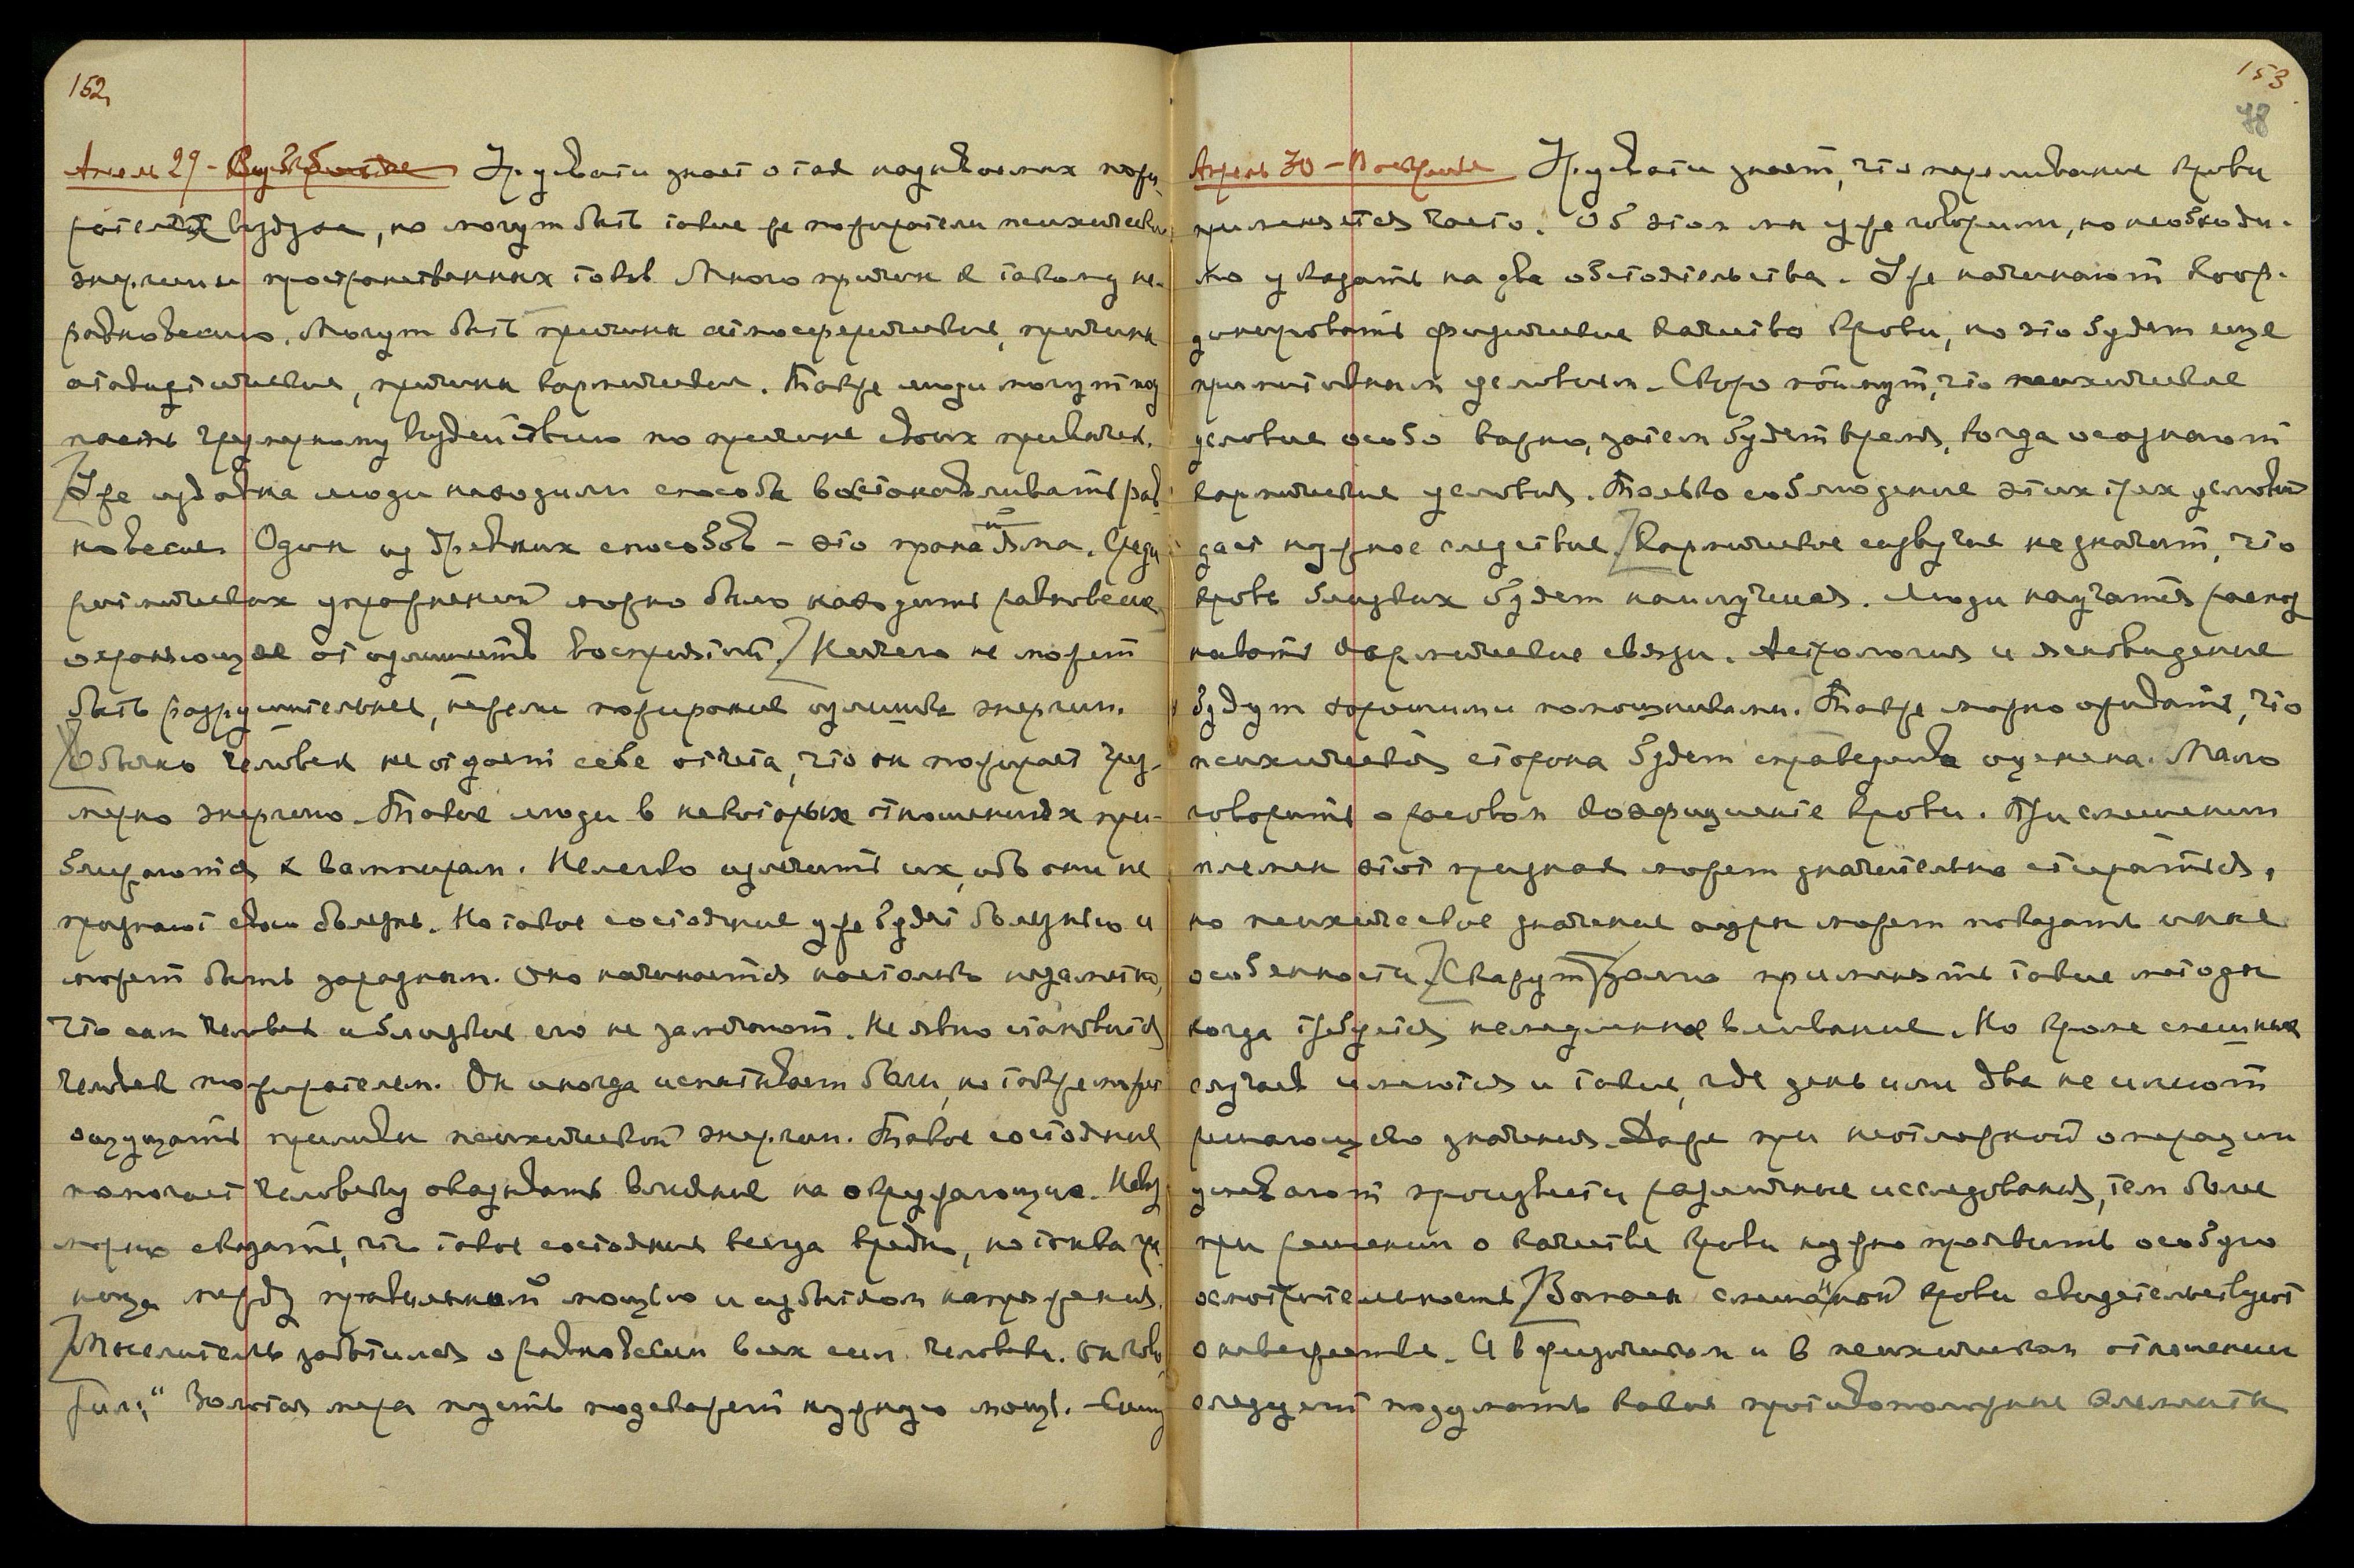 152
Урусвати знает о так называемых пожи-
рателях воздуха, но могут быть такие же пожиратели психической
энергии и пространственных токов. Много причин к такому не-
равновесию. Могут быть причины атмосферические, причины
атавистические, причины кармические. Также люди могут под
пасть чрезмерному воздействию по причине своих привычек.
Уже издавна люди находили способы восстанавливать рав-
новесие. Один из древних способов – это пранаяма. Среди
ритмических упражнений можно было находить равновесие,
охраняющее от излишеств восприятий. Ничего не может
быть разрушительнее, нежели пожирание излишка энергии.
Обычно человек не отдает себе отчета, что он пожирает чрез-
мерно энергию. Такие люди в некоторых отношениях при-
ближаются к вампирам. Нелегко излечить их, ибо они не
признают свою болезнь. Но такое состояние уже будет болезнью и
может быть заразным. Оно начинается настолько незаметно,
что сам человек и близкие его не замечают. Не явно становится
человек пожирателем. Он иногда испытывает боли, но также может
ощущать приливы психической энергии. Такое состояние
помогает человеку оказывать влияние на окружающих. Невоз
можно сказать, что такое состояние всегда вредно, но тонка гра
ница между правильной мощью и избытком напряжения.
Мыслитель заботился о равновесии всех сил человека. Он гово
рил: "Золотая мера пусть подскажет нужную мощь.
153
78
Апрель 30 – Воскресенье Урусвати знает, что переливание крови
применяется часто. Об этом мы уже говорили, но необходи-
мо указать на два обстоятельства. Уже начинают коор-
динировать физические качества крови, но это будет еще
примитивным условием. Скоро поймут, что психическое
условие особо важно, затем будет время, когда осознают
кармические условия. Только соблюдение этих трех условий
даст нужное следствие. Кармическое созвучие не значит, что
кровь близких будет наилучшая. Люди научатся распоз
навать кармические связи. Астрология и ясновидение
будут хорошими помощниками. Также можно ожидать, что
психическая сторона будет справедливо оценена. Мало
говорить о расовом коэффициенте крови. При смешении
племен этот признак может значительно стираться,
но психическое значение ауры может показать иные
особенности. Скажут: трудно применять такие методы
когда требуется немедленное вливание. Но кроме спешных
случаев имеются и такие, где день или два не имеют
решающего значения. Даже при неотложной операции
успевают произвести различные исследования, тем более
при решении о качестве крови нужно проявить особую
осмотрительность. Запасы смешанной крови свидетельствуют
о невежестве. И в физическом и в психическом отношении
следует подумать какие противоположные элементы